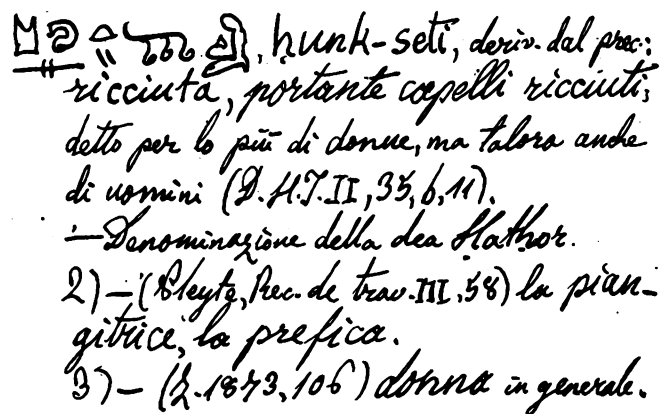 , ḥunk-seti, deriv. dal prec.:
ricciuta, portante capelli ricciuti;
detto per lo più di donne, ma talora anche
di uomini (D.H.I. II, 35, 6, 11).
— Denominazione della dea Hathor.
2) — (Pleyte, Rec. de trav. III, 58) la pian-
gitrice, la prefica.
3) — (Z. 1873, 106) donna in generale.